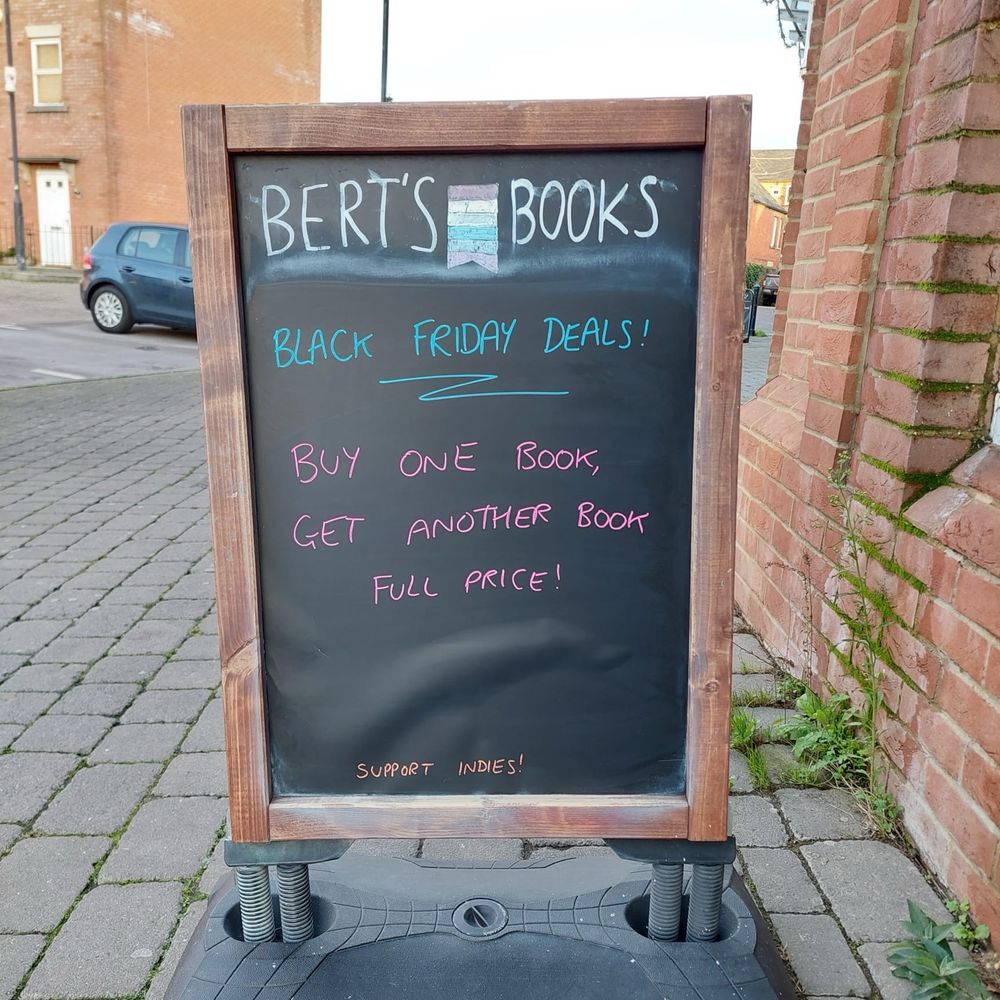 BERT'S BOOKS
BLACK FRIDAY DEALS!
BUY ONE BOOK,
GET ANOTHER BOOK
FULL PRICE!
SUPPORT INDIES!